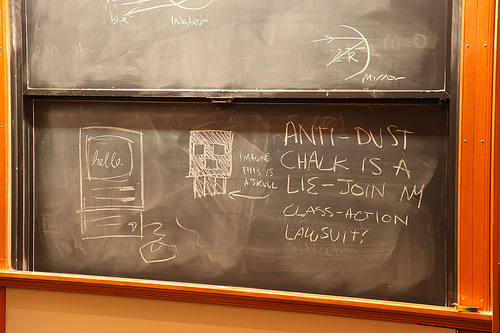 Water
Mirror
hello.
IMAGINE
THIS IS
A SKULL
ANTI-DUST
CHALK IS A
LIE-JOIN MY
CLASS-ACTION
LAWSUIT!